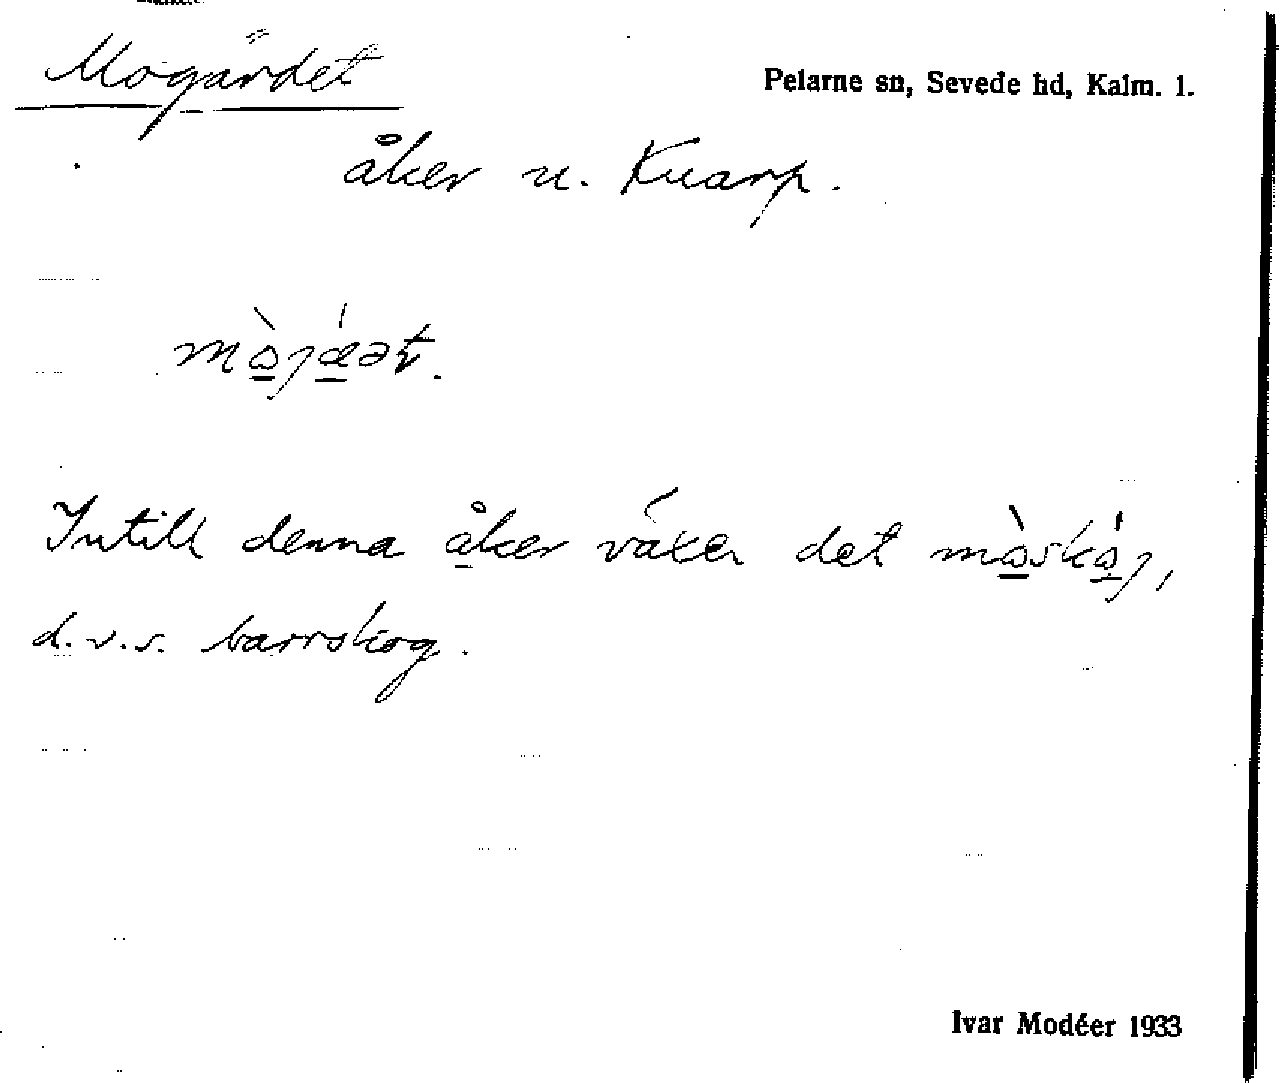 Mogärdet
Pelarne sn, Sevede hd, Kalm. l.
åker u. Knarp.
Intill denna åker växer det
d.v.s. barrskog.
Ivar Modéer 1933